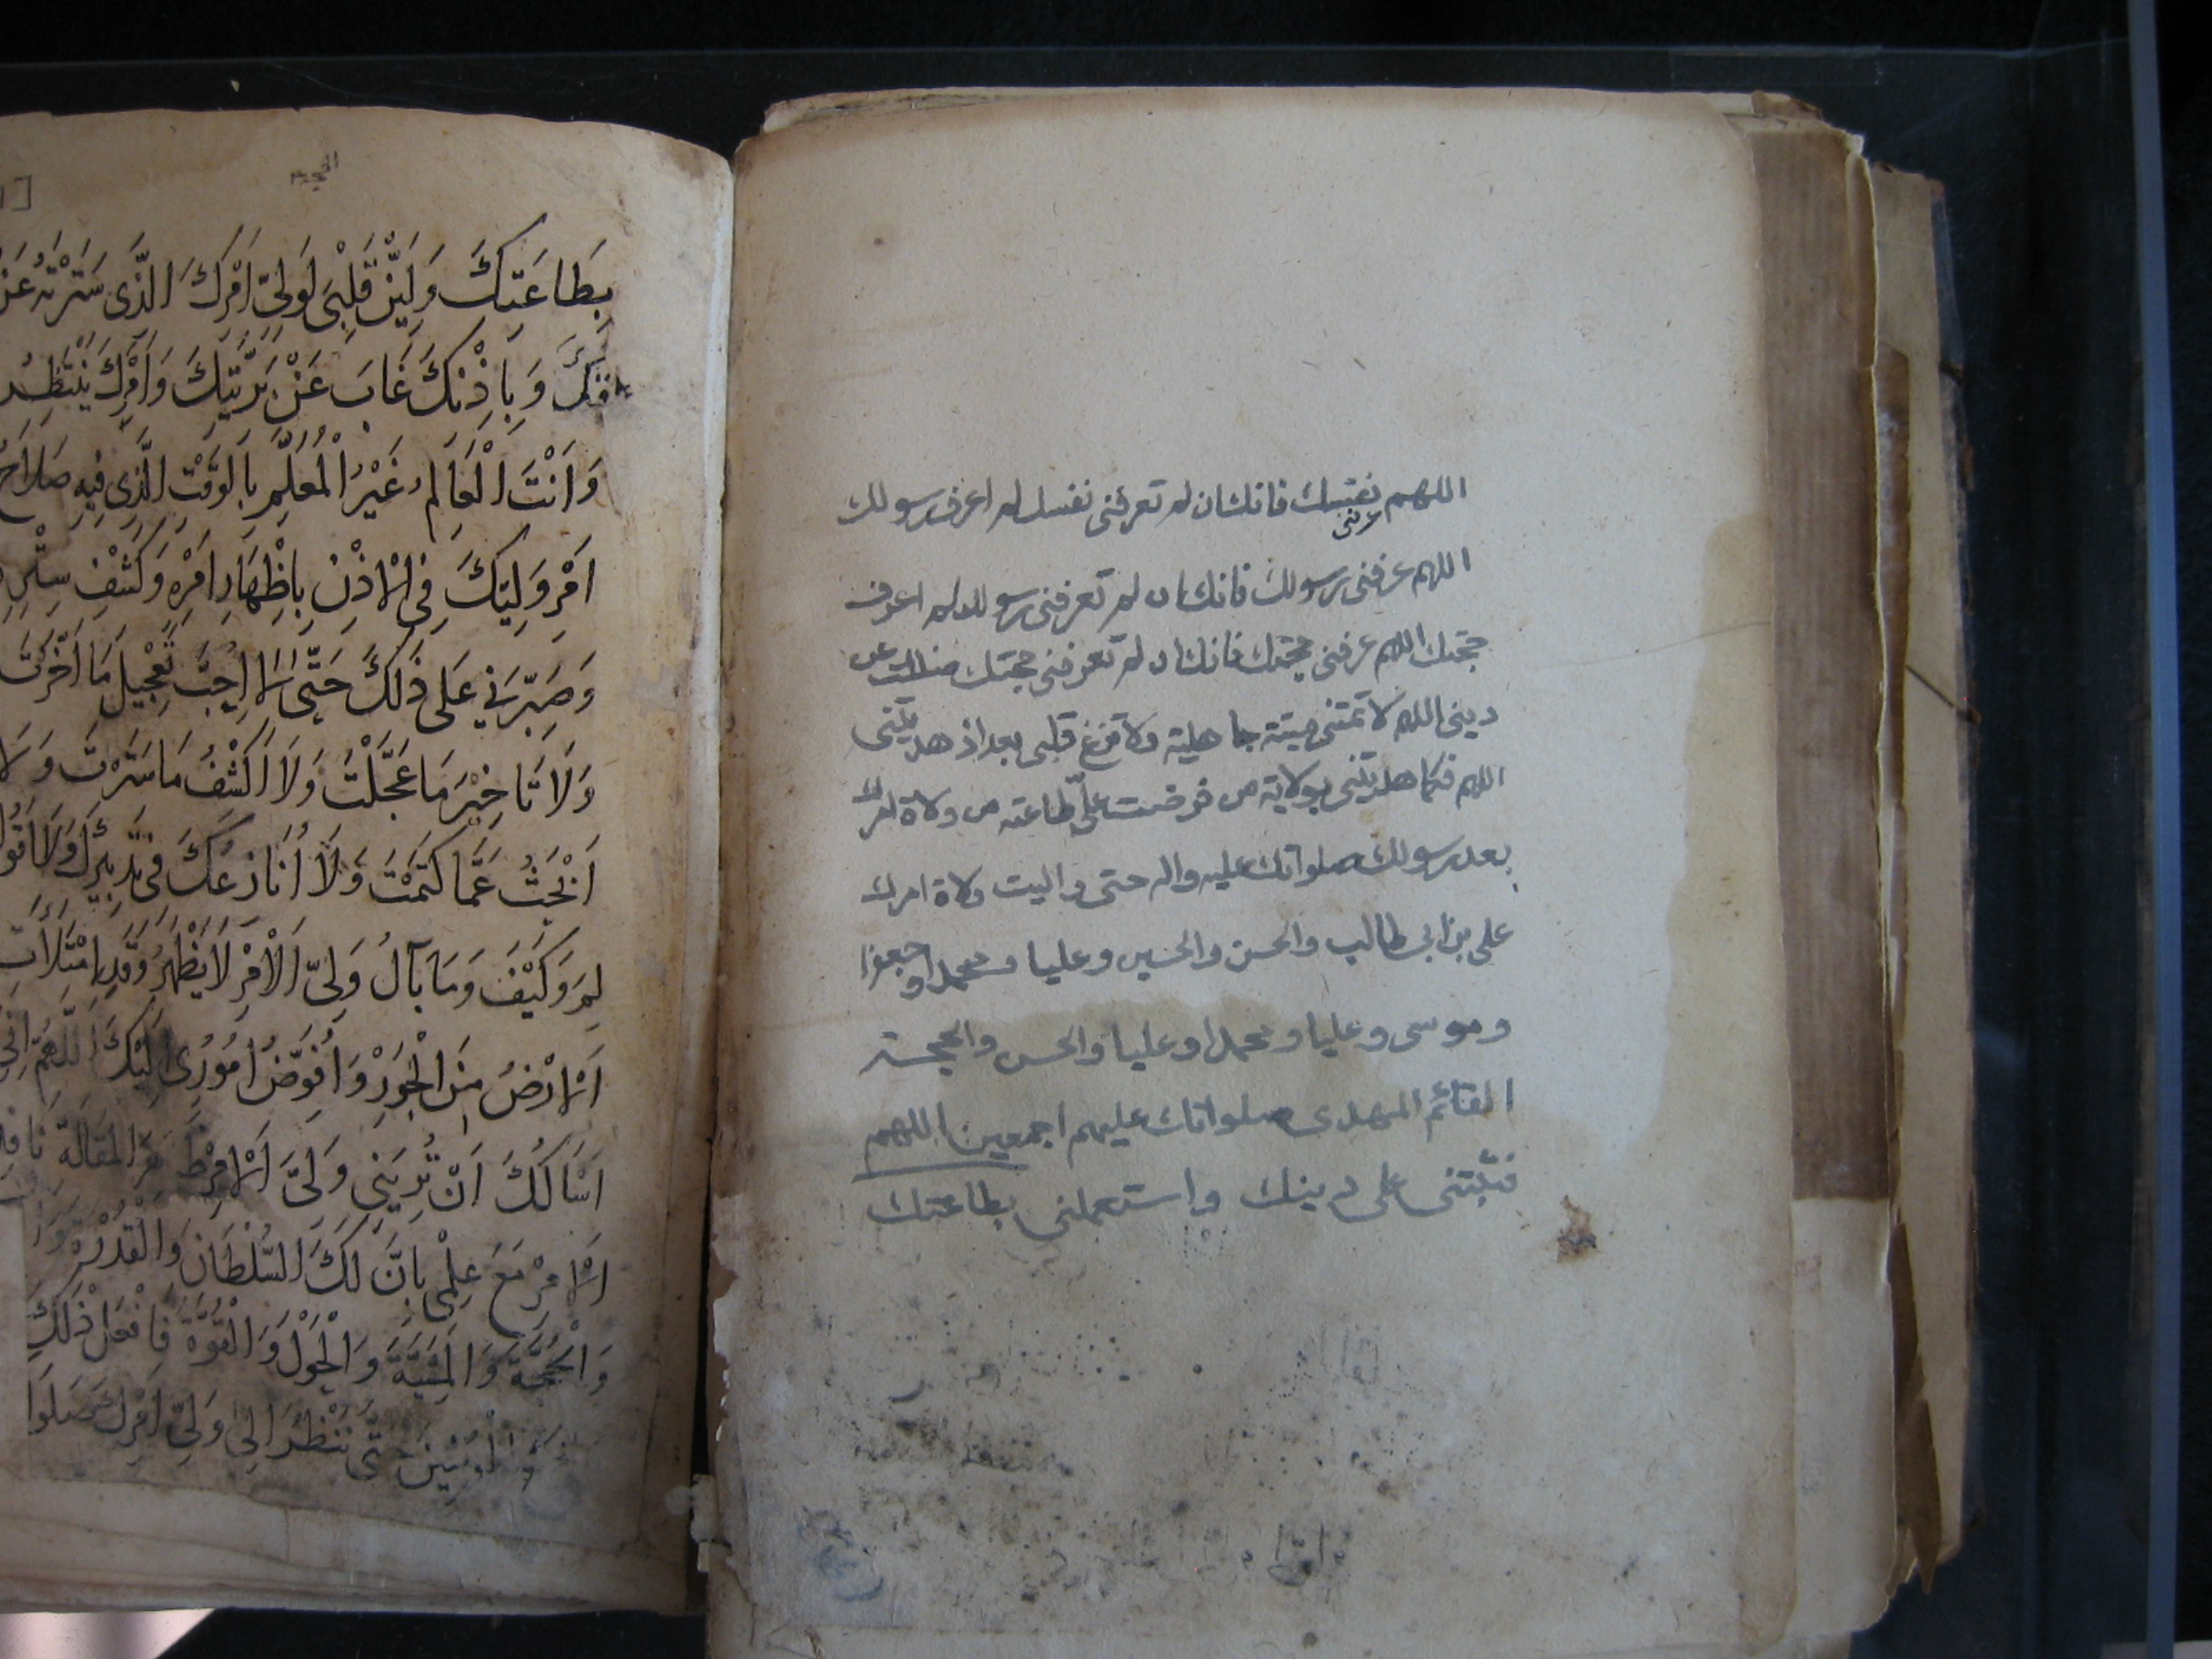 اللهم عرفنى نفسك فانك ان لم تعرفنى نفسك لم اعرف رسولك
اللهم عرفنى رسولك فانك ان لم تعرفنى رسولك لم اعرف
حجتك اللهم عرفنى حجتك فانك ان لم تعرفنى حجتك ضللت عن
دينى اللهم لا تمتنى ميتة جاهلية ولا تزغ قلبى بعد اذ هديتنى
اللهم فكما هديتنى بولاية من فرضت علىّ طاعته من ولاة امرك
بعد رسولك صلواتك عليه واله حتى واليت ولاة امرك
على بن ابى طالب والحسن والحسين وعليا ومحمدا وجعفرا
وموسى وعليا ومحمدا وعليا والحسن والحجة
القائم المهدى صلواتك عليهم اجمعين اللهم
فثبّتنى على دينك واستعملنى بطاعتك
بِطَاعَتِكَ وَلَيِّنْ قَلْبِىَ لِوَلِىِّ اَمْرِكَ الَّذِى سَتَرْتَهُ عَنْ
خلقك وَبِاِذْنِكَ غَابَ عَنْ بَرِيَّتِكَ وَاَمْرَكَ يَنْتَظِرُ
وَاَنْتَ الْعَالِمُ غَيْرُ الْمُعَلَّمِ بِالْوَقْتِ الَّذِى فِيهِ صَلَاحُ
اَمْرِ وَلِيِّكَ فِى الْاِذْنِ بِاِظْهَارِ اَمْرِهِ وَكَشْفِ سِتْرِهِ
وَصَبِّرْنِى عَلَى ذَلِكَ حَتَّى لَا اُحِبَّ تَعْجِيلَ مَا اَخَّرْتَ
وَلَا تَاخِيْرَ مَا عَجَّلْتَ وَلَا اَكْشِفُ مَا سَتَرْتَ وَلَا
اَبْحَثُ عَمَّا كَتَمْتَ وَلَا اُنَازِعُكَ فِى تَدْبِيْرِكَ وَلَا اَقُولُ
لِمَ وَكَيْفَ وَمَا بَالُ وَلِىِّ الْاَمْرِ لَا يَظْهَرُ وَقَدِ امْتَلَاَتِ
الْاَرْضُ مِنَ الْجَوْرِ وَاُفَوِّضُ اُمُوُرِى اِلَيْكَ اَللّٰهُمَّ اِنِّى
اَسْاَلُكَ اَنْ تُرِيَنِى وَلِىَّ الْاَمْرِ
الْاَمْرِ مَعَ عِلْمِى بِاَنَّ لَكَ السُّلْطَانَ وَالْقُدْرَةَ
وَالْحُجَّةَ وَالْمَشِيَّةَ وَالْحَوْلَ وَالْقُوَّةَ فَافْعَلْ ذَلِكَ
الْمُؤْمِنِينَ حَتَّى نَنْظُرَ اِلَى وَلِىِّ اَمْرِكَ صَلَوَا